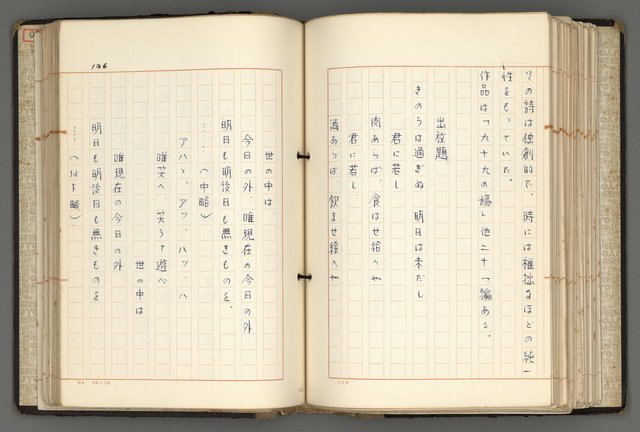 その詩は独創的で、時には稚拙なほどの純一
性をもっていた。
作品は「九十九の嫗」他二十一編ある。
出放題
きのうは過ぎぬ 明日は未だし
君に若し
肉あらば、食はせ給へや
君に若し
酒あらば、飲ませ給へや
196
世の中は
今日の外、唯現在の今日の外
明日も明後日も無きものを、
……(中略)
アハヽ、アッ、ハッ、ハ
唯笑へ、笑うて遊べ
世の中は
唯現在の今日の外
明日も明後日も無きものを
……(以下略)